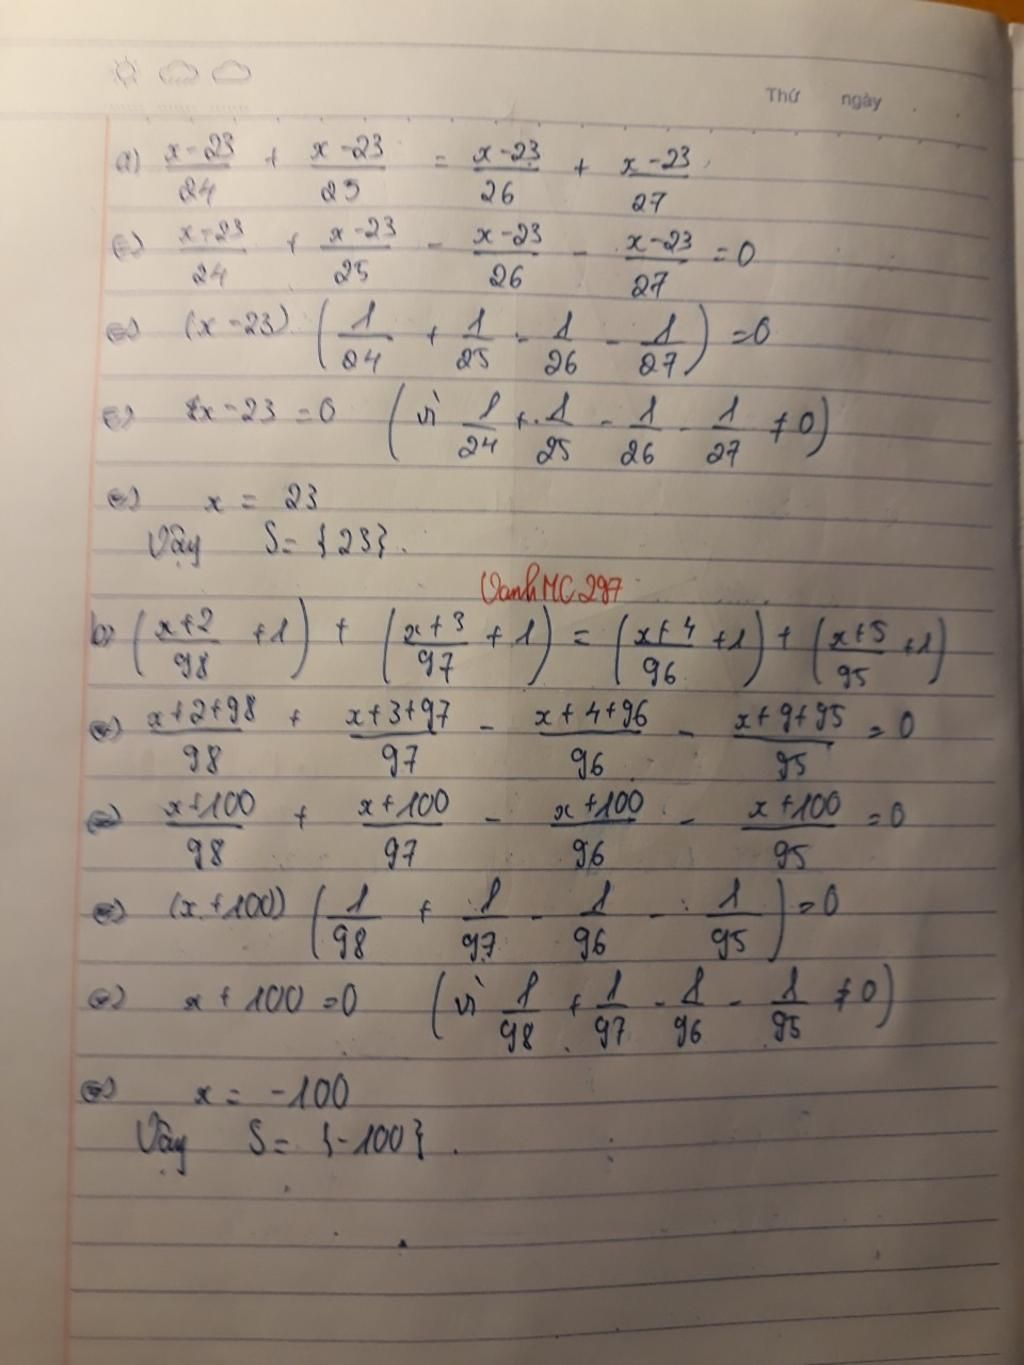 Thứ ngày
a) x-23/24 + x-23/25 = x-23/26 + x-23/27
⇔) x-23/24 + x-23/25 - x-23/26 - x-23/27 = 0
⇔) (x-23) (1/24 + 1/25 - 1/26 - 1/27) = 0
⇔) x-23 = 0 (vì 1/24 + 1/25 - 1/26 - 1/27 ≠ 0)
⇔) x = 23
Vậy S = {23}.
VanhMC297
b) (x+2/98 + 1) + (x+3/97 + 1) = (x+4/96 + 1) + (x+5/95 + 1)
⇔) x+2+98/98 + x+3+97/97 - x+4+96/96 - x+9+95/95 = 0
⇔) x+100/98 + x+100/97 - x+100/96 - x+100/95 = 0
⇔) (x+100) (1/98 + 1/97 - 1/96 - 1/95) = 0
⇔) x+100 = 0 (vì 1/98 + 1/97 - 1/96 - 1/95 ≠ 0)
⇔) x = -100
Vậy S = {-100}.